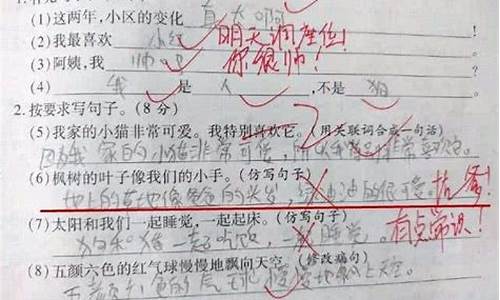 (1)这两年,小区的变化真大啊
(2)我最喜欢小红 明天调座位!
(3)阿姨,我帅吧 你很帅!
(4)我是人,不是狗
2.按要求写句子。(8分)
(5)我家的小猫非常可爱。我特别喜欢它。(用关联词合成一句话)
因为我家的小猫非常可爱,所以我特别非常喜欢它。
(6)枫树的叶子像我们的小手。(仿写句子)
地上的草地像爸爸的头发,绿油油的很可爱。
(7)太阳和我们一起睡觉,一起起床。(仿写句子)
狗和猪一起吃饭,一起睡觉。 有点常识!
(8)五颜六色的红气球慢慢地飘向天空。(修改病句)
五颜六色的气球慢慢地飘上天空。